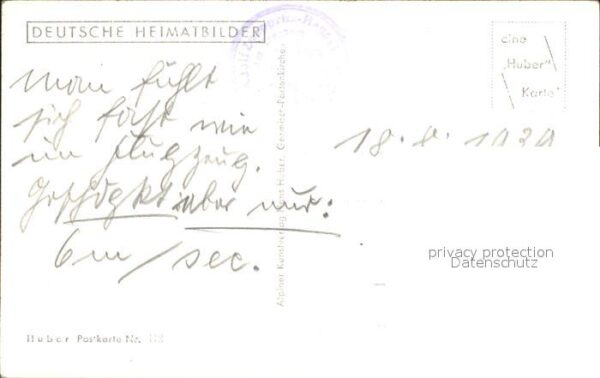 DEUTSCHE HEIMATBILDER
eine
„Huber"
Karte
Man fühlt
sich fast wie
im Flugzeug.
aber nur:
6m/sec.
18. 8. 1939
Alpiner Kunstverlag Hans Huber, Garmisch-Partenkirchen
privacy protection
Datenschutz
Huber Postkarte Nr.